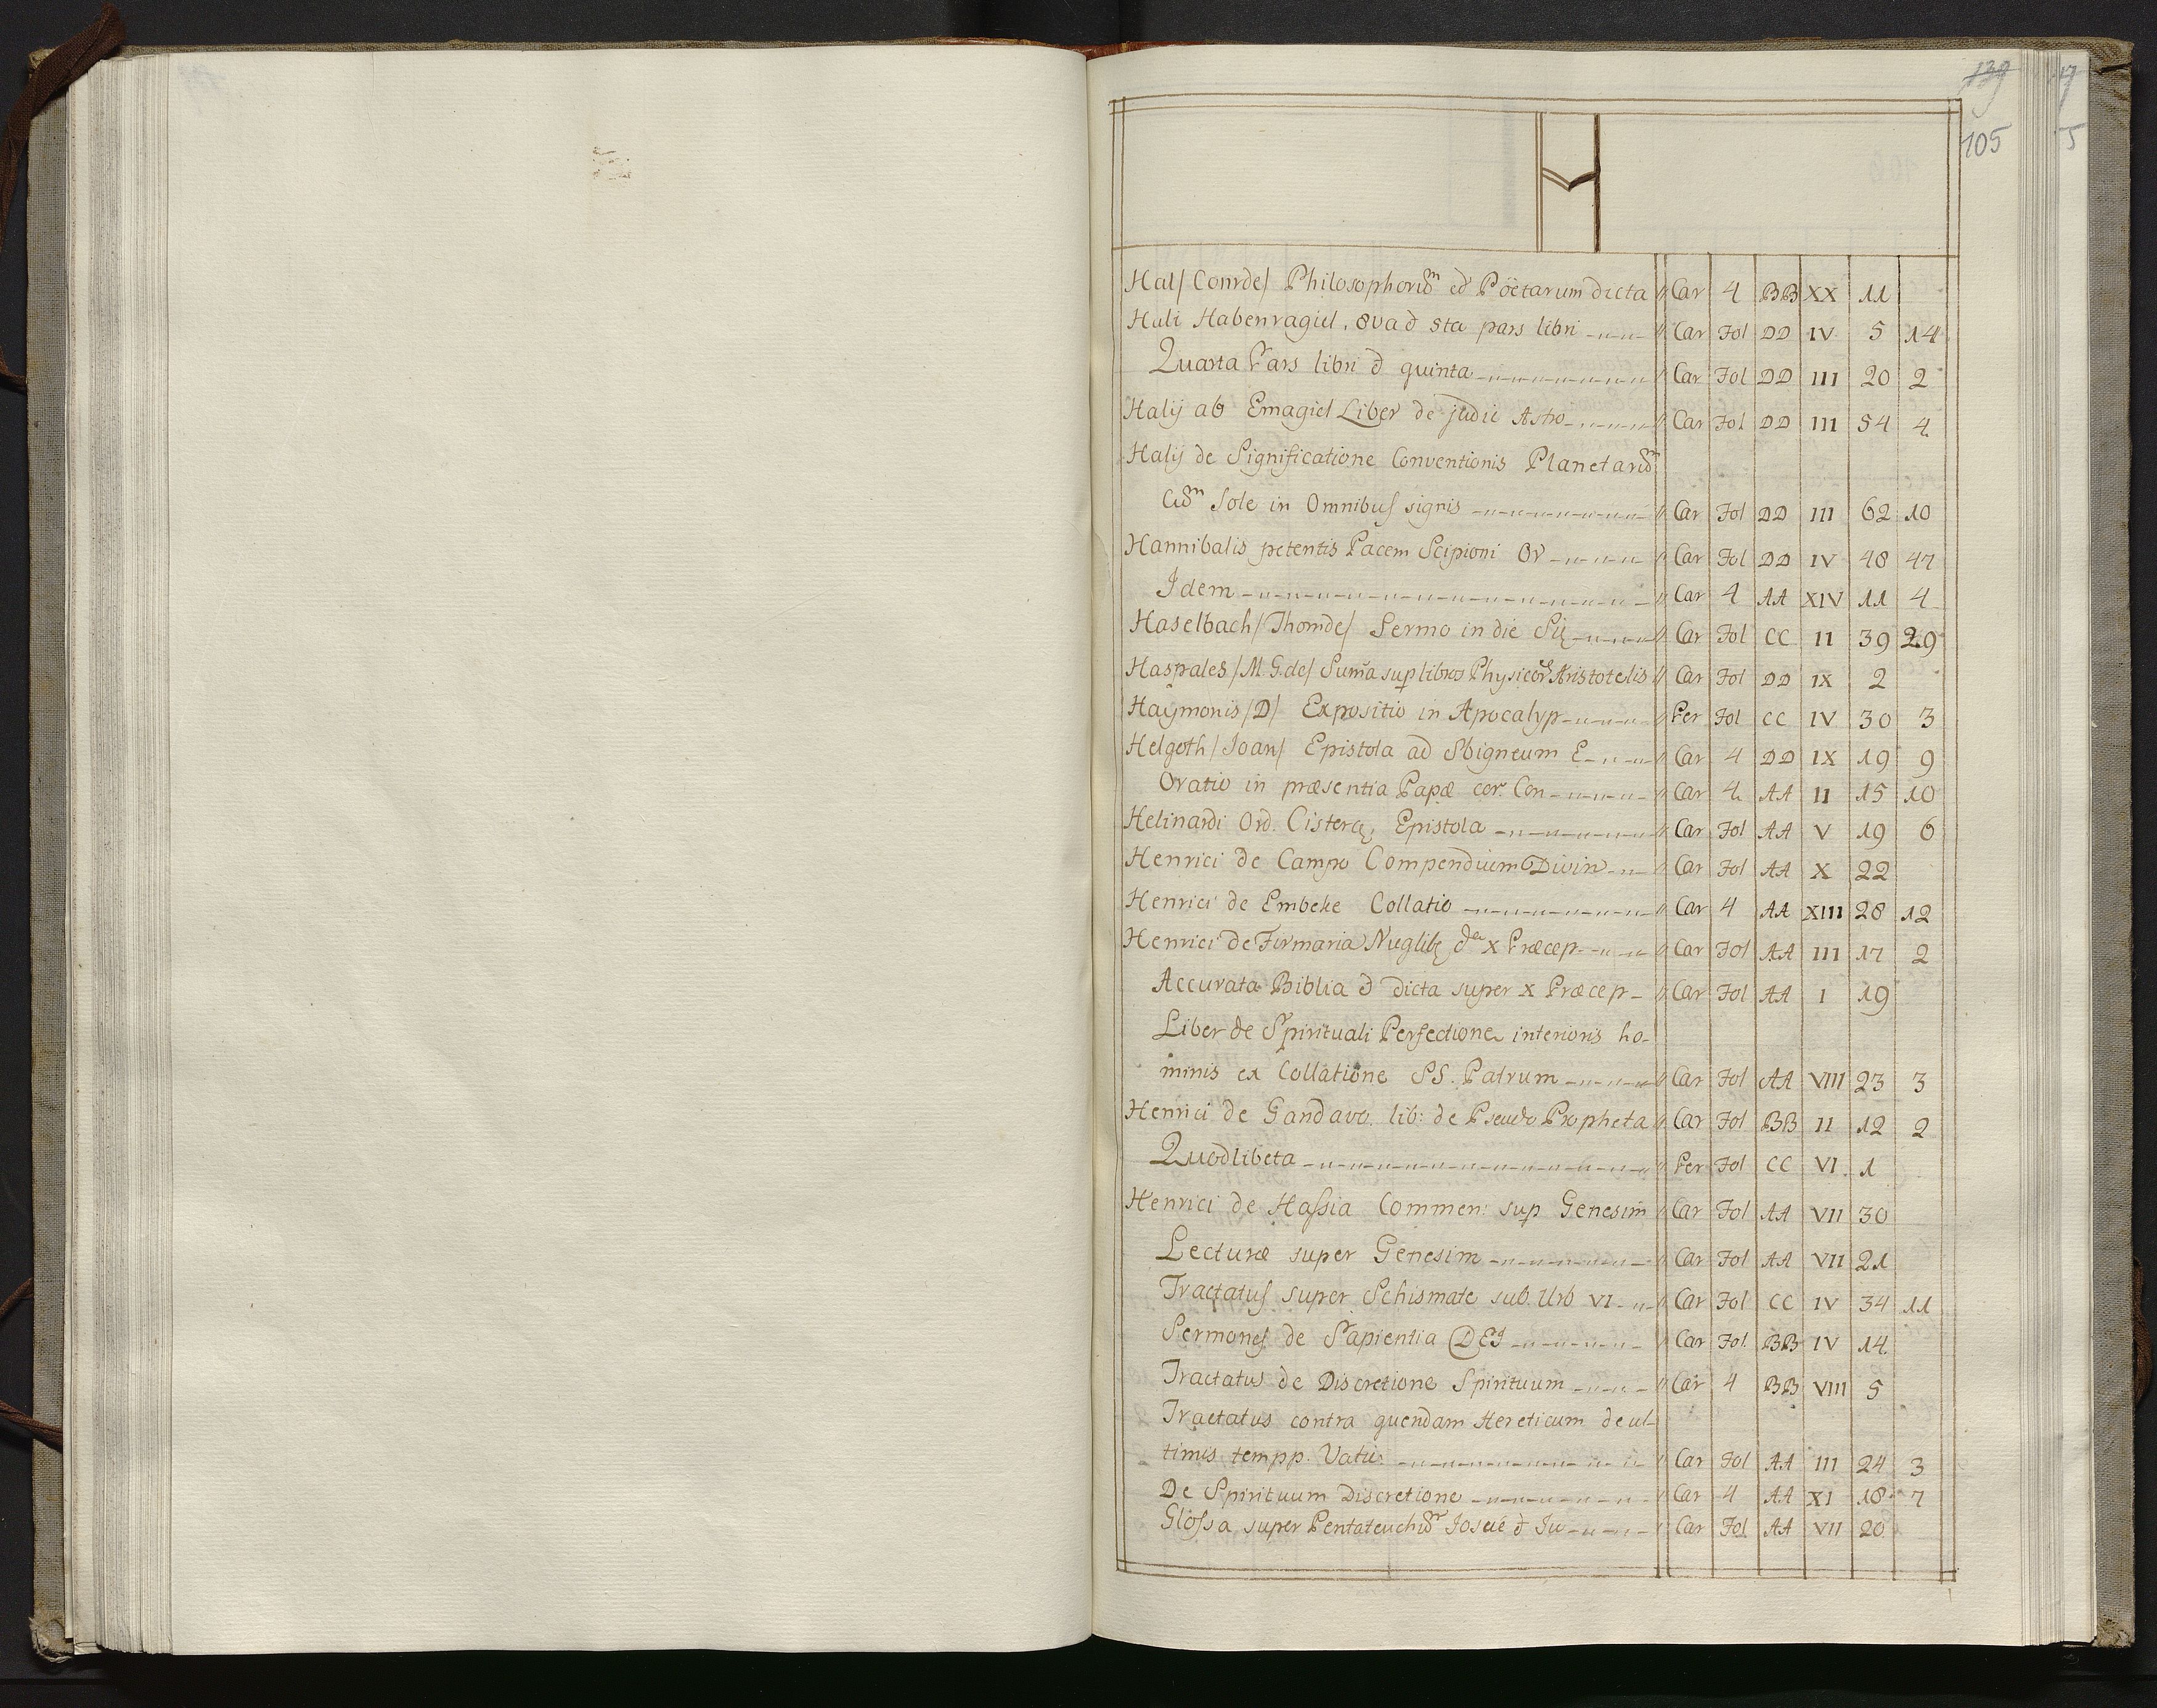 139
105
H
Hal/Conrde/ Philosophorum et Pöetarum dicta Car 4 BB XX 11
Hali Habenragiel. 8va et sta pars libri Car Fol DD IV 5 14
Quarta Pars libri et quinta Car Fol DD III 20 2
Halÿ ab Emagiel Liber de judic Astro Car Fol DD III 54 4
Halÿ de Significatione Conventionis Planetarum
Cum Sole in Omnibus signis Car Fol DD III 62 10
Hannibalis petentis Pacem Scipioni Or Car Fol DD IV 48 47
Idem Car 4 AA XIV 11 4
Haselbach/Thomde/ Sermo in die Car Fol CC II 39 29
Haspales/M.G.de/ Suma sup libros Physicor Aristotelis Car Fol DD IX 2
Haÿmonis/D/ Expositio in Apocalyp Per Fol CC IV 30 3
Helgoth/Joan/ Epistola ad Sbigneum E Car 4 DD IX 19 9
Oratio in præsentia Papæ cor. Con Car 4 AA II 15 10
Helinardi Ord. Cisterc. Epistola Car Fol AA V 19 6
Henrici de Campo Compendium Divin Car Fol AA X 22
Henrici de Embeke Collatio Car 4 AA XIII 28 12
Henrici de Firmaria X Præcep Car Fol AA III 17 2
Accurata Biblia et dicta super X Præcep Car Fol AA I 19
Liber de Spirituali Perfectione interioris ho-
minis ex Collatione SS. Patrum Car Fol AA VIII 23 3
Henrici de Gandavo lib: de Pseudo Propheta Car Fol BB II 12 2
Quodlibeta Per Fol CC VI 1
Henrici de Hassia Commen: sup Genesim Car Fol AA VII 30
Lecturæ super Genesim Car Fol AA VII 21
Tractatus super Schismate sub Urb VI Car Fol CC IV 34 11
Sermones de Sapientia DEI Car Fol BB IV 14
Tractatus de Discretione Spirituum Car 4 BB VIII 5
Tractatus contra quendam Hereticum de ul-
timis tempp. Vatic Car Fol AA III 24 3
De Spirituum Discretione Car 4 AA XI 18 7
Glossa super Pentateuchum Josue et Ju Car Fol AA VII 20